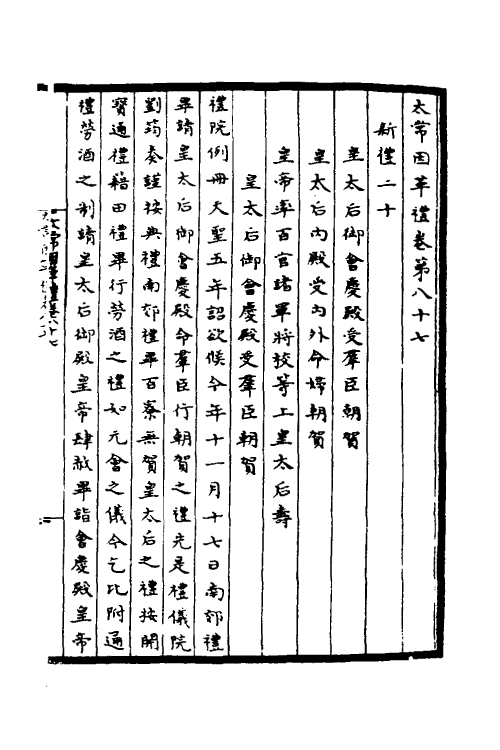 太常因革禮卷第八十七
新禮二十
皇太后御會慶殿受羣臣朝賀
皇太后内殿受内外命婦朝賀
皇帝率百官諸軍將校等上皇太后壽
皇太后御會慶殿受羣臣朝賀
禮院例冊天聖五年詔欲候今年十一月十七日南郊禮
畢請皇太后御會慶殿命羣臣行朝賀之禮先是禮儀院
劉筠奏謹按典禮南郊禮畢百寮無賀皇太后之禮按開
寳通禮籍田禮畢行勞酒之禮如元會之儀今乞比附通
禮勞酒之制請皇太后御殿皇帝肆赦畢詣會慶殿皇帝
太常因革禮卷八十七